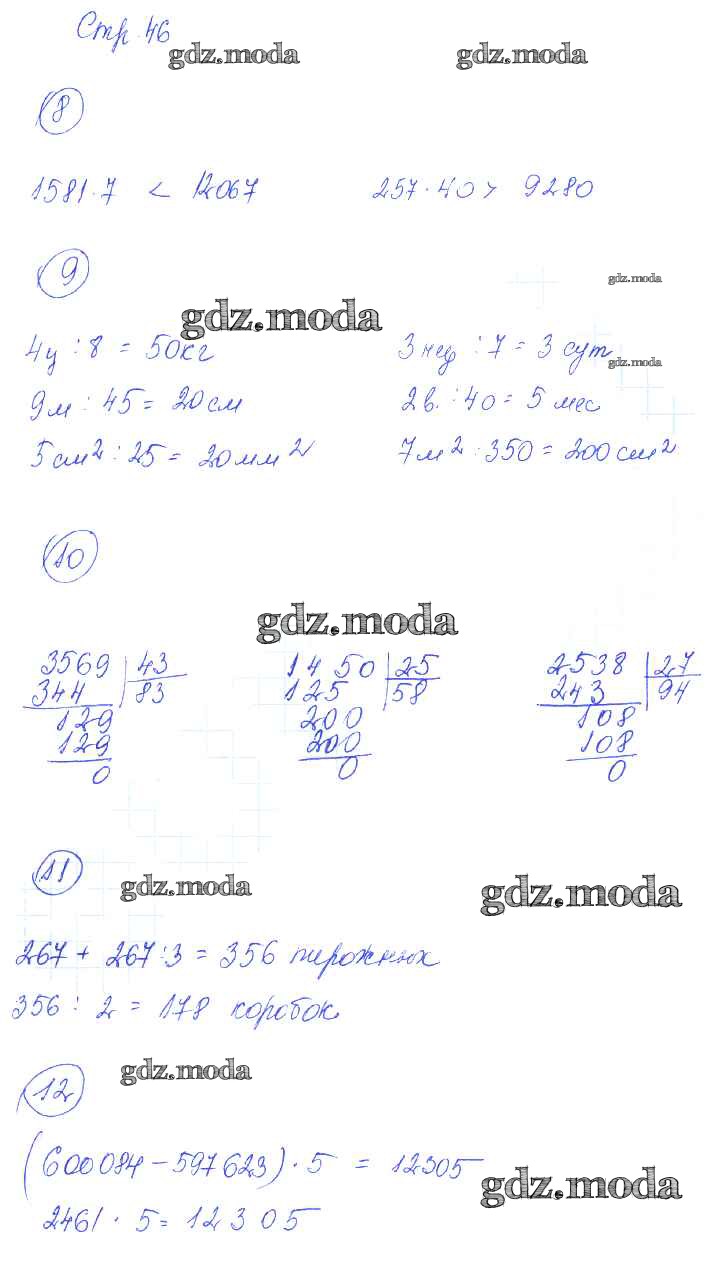 Стр. 46
gdz.moda gdz.moda
8
1581·7 < 12067 257·40 > 9280
9
gdz.moda
gdz.moda
4ц : 8 = 50кг 3 нед : 7 = 3 сут
gdz.moda
9м : 45 = 20 см 2в. : 40 = 5 мес
5 см² : 25 = 20 мм² 7м² : 350 = 200 см²
10
gdz.moda
3569 43 1450 25 2538 27
344 83 125 58 243 94
129 200 108
129 200 108
0 0 0
11
gdz.moda gdz.moda
267 + 267:3 = 356 пирожных
356 : 2 = 178 коробок
gdz.moda
12
(600084 – 597623) · 5 = 12305
gdz.moda
2461 · 5 = 12305